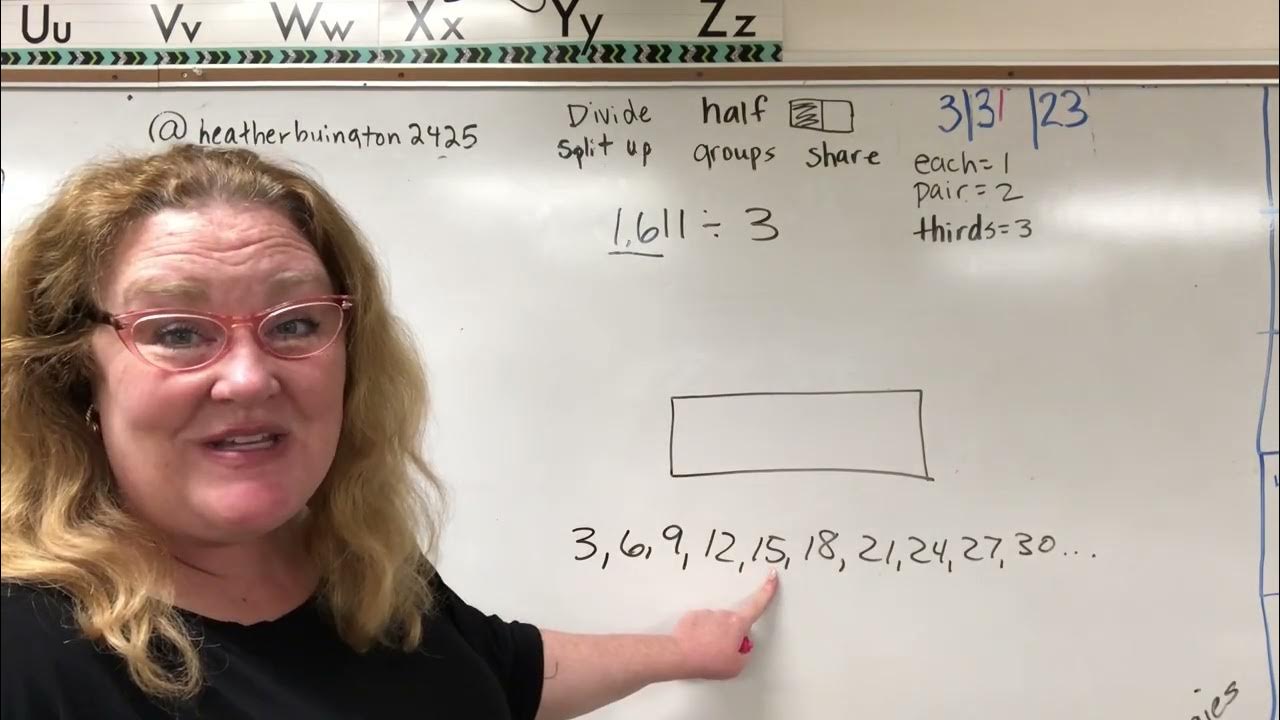 Uu Vv Ww Xx Yy Zz
@heatherbuington2425
Divide half
split up groups share
3|3| |23
each=1
pair=2
thirds=3
1,611 ÷ 3
3, 6, 9, 12, 15, 18, 21, 24, 27, 30...